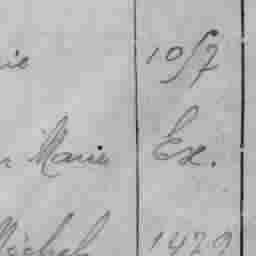 ie 1057
Marie Ex.
Michel 1479